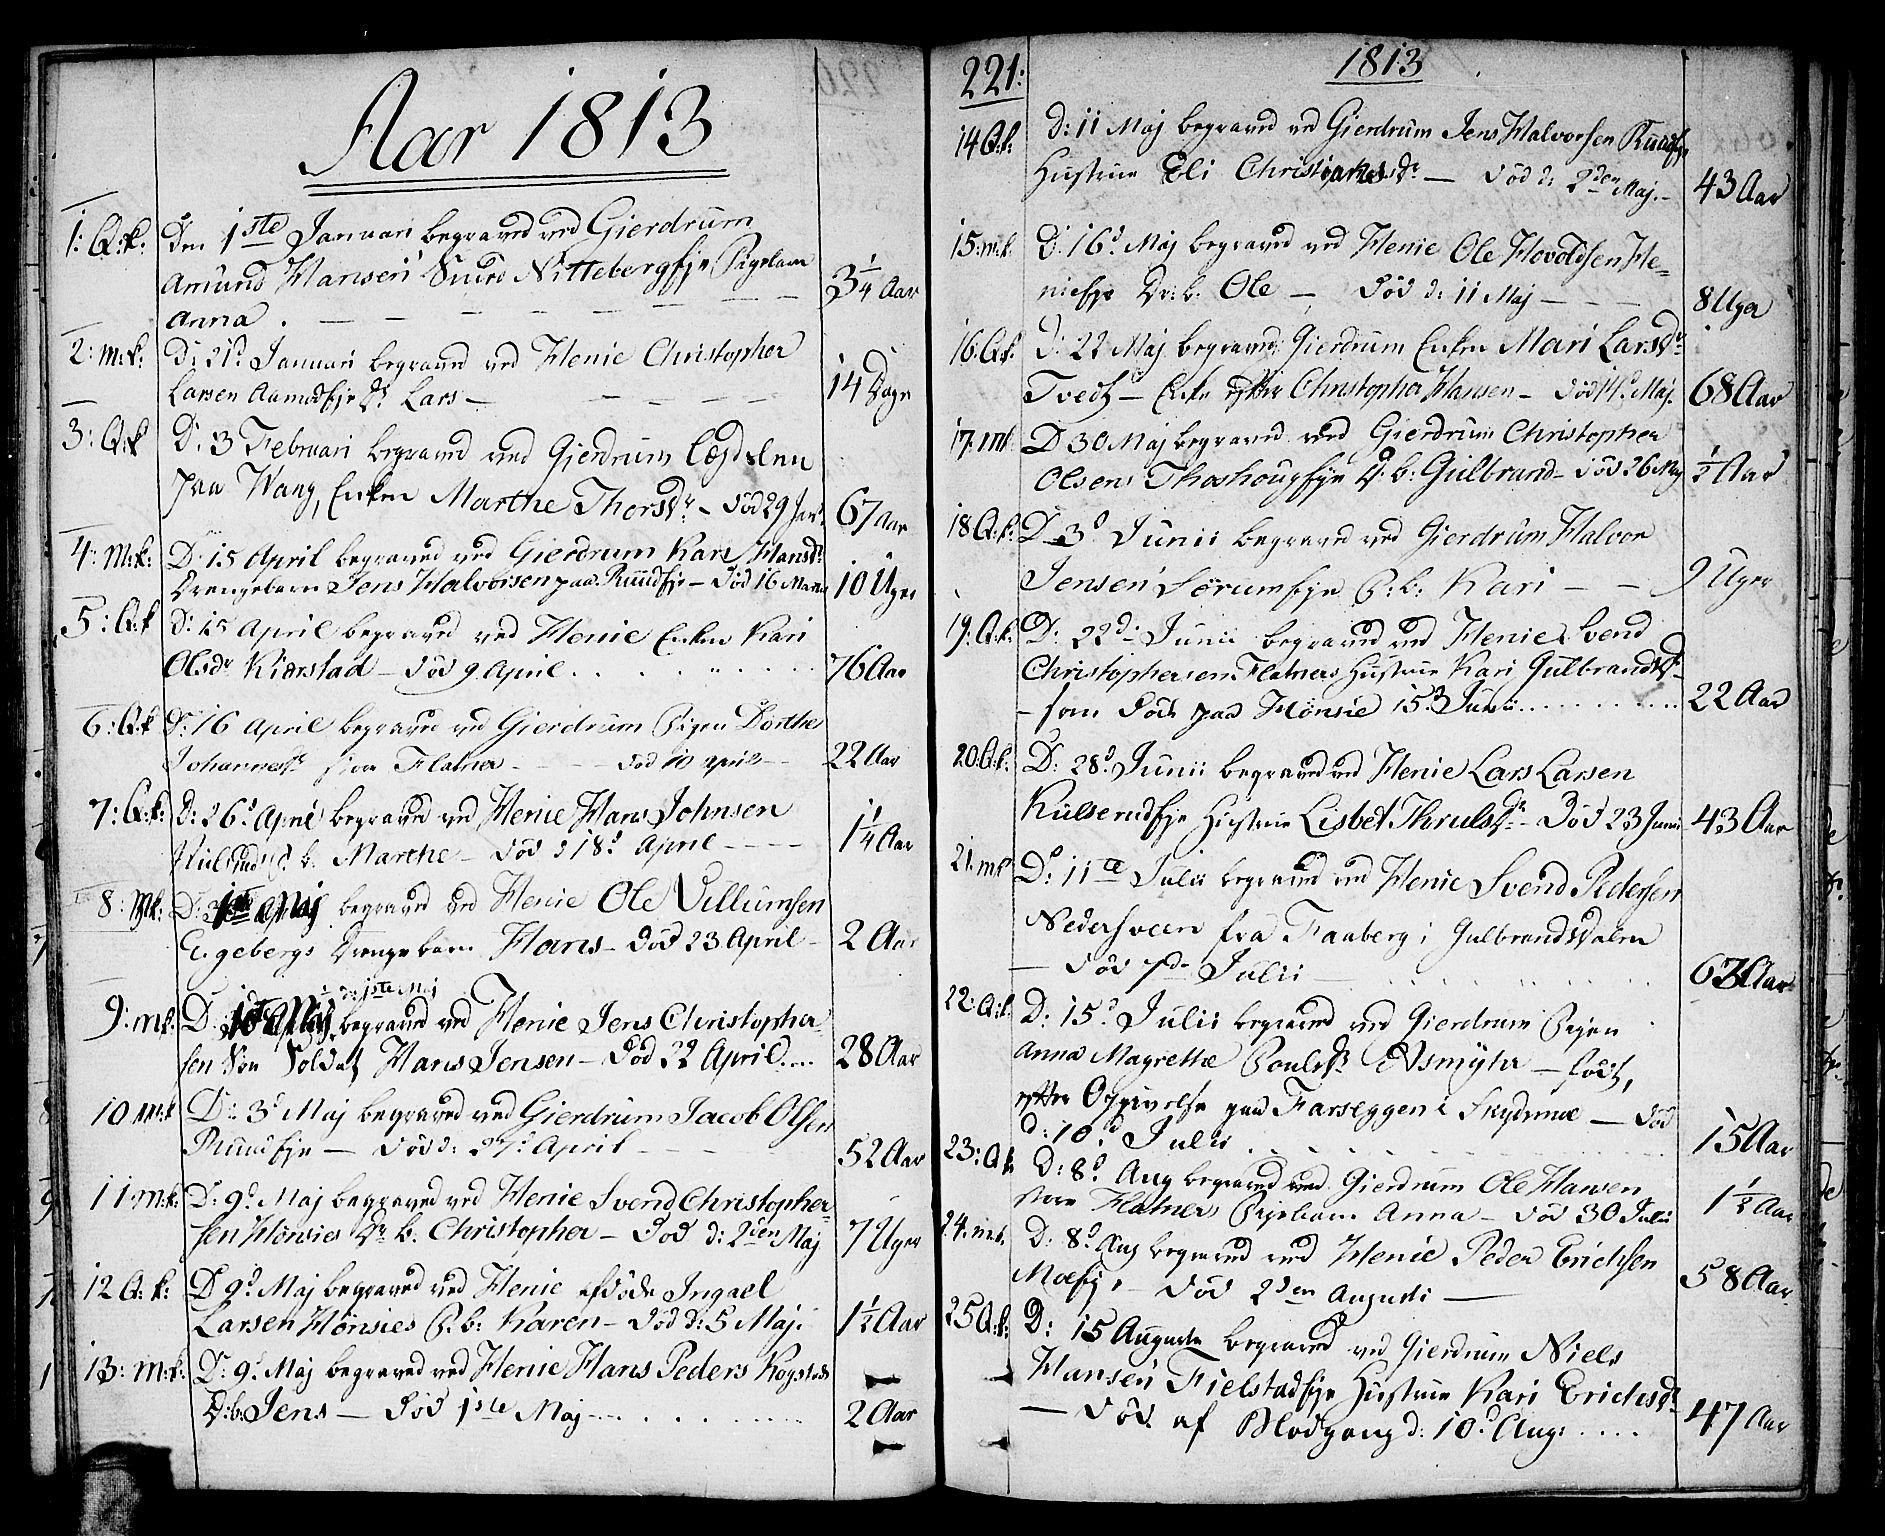 Aar 1813
1: Q:k: Den 1ste Januari begraved ved Gierdrum
Amund Hansen Nittebergeje Pigebarn
Anna . — — — — — 3 1/4 Aar
2: M:k: D: 21d Januari begraved ved Henie Christopher
Larsen Aamudeje Lars — — — 14 Dage
3: Q:k D: 3 Februari begraved ved Gjerdrum Lægdslem
paa Wang, Enken Marthe Thorsdr — død 29 Jan. 67 Aar
4: M:k: D: 15 April begraved ved Gierdrum Kari Hansdr
Drengebarn Jens Halvorsen paa Ruudeje — død 16 Martii 10 Uger
5: Q:k D: 15 April begraved ved Henie Enken Kari
Olsdr Kiørstad — død 9 April . . . . . 76 Aar
6: Q:k D: 16 April begraved ved Gierdrum Pigen Dorthe
Johannesdr store Flatner — — — død 10 april — 22 Aar
7: Q:k: D: 26d April begraved ved Henie Hans Johnsen
P. b. Marthe — død d 18d April — — — 1 1/4 Aar
8: Mk: D: begraved ved Henie Ole Villumsen
Egebergs Drengebarn Hans — død 23 April — 2 Aar
d: 1ste Maj
9: mk: D. begraved ved Henie Jens Christopher-
sen Søn Soldat Hans Jensen — død 22 April .... 28 Aar
10 M:k D: 3d Maj begraved ved Gierdrum Jacob Olsen
Ruudeje — død d: 27d April — — — 52 Aar
11: M:k: D: 9d Maj begraved ved Henie Svend Christopher-
sen Hønsies Dr. b. Christopher — død d: 2den Maj 7 Uger
12 Q: k: D 9d Maj begraved ved Henie afdøde Ingael
Larsen Hønsies P. b: Karen — død d: 5 Maj. 1 1/2 Aar
13: M:k: D: 9d Maj begraved ved Henie Hans Peders Kogstads
D:b: Jens — død 1ste Maj — . . . . . . . 2 Aar
221: 1813
14 Q:k: D: 11 Maj begraved ved Gierdrum Jens Halvorsen Ruudeje
Hustrue Eli Christiansdr — død d: 2den Maj. — 43 Aar
15: m:k: D: 16d Maj begraved ved Henie Ole Hovoldsen He-
nieeje Dr: b. Ole — død d: 11 Maj — — — 8 Uger
16: Q:k: D: 22 Maj begraved Gierdrum Enken Mari Larsdr
Tvedt — Enke efter Christopher Hansen — død 14d Maj. 68 Aar
17: mk D 30 Maj begraved ved Gierdrum Christopher
Olsens Thoshougeje D: b: Gulbrand — død 26 Maj 1/2 Aar
18 Q:k: D 3d Junii begraved ved Gierdrum Halvor
Jensen Sørumeje P: b: Kari — — 9 Uger
19: Q:k: D: 22d Junii begraved ved Henie Svend
Christophersen Flatners Hustrue Kari Gulbrandsdr
— som døde paa Hønsie 15d Junii .......... 22 Aar
20: Q:k: D: 28d Junii begraved ved Henie Lars Larsen
Kulserudeje Hustrue Lisbet Thrulsdr — Død 23 Junii 43 Aar
21: mk D: 11te Julii begraved ved Henie Svend Pedersen
Nedersveen fra Faaberg i Gulbrandsdalen
— død 7de Julii — . . . . . . . 67 Aar
22: Q:k: D: 15d Julii begraved ved Gierdrum Pigen
Anna Magrethe Poulsdr Asmyhr — født,
efter Opgivelse paa Farseggen i Skydsmoe — død
d: 10d Julii . . . . . . . . 15 Aar
23: Q:k D: 8d Aug begraved ved Gierdrum Ole Hansen
store Flatners Pigebarn Anna — død 30 Julii 1 1/2 Aar
24. m:k. D: 8d Aug begraved ved Henie Peder Erichsen
Moeeje — død 2den Augusti — 58 Aar
25 Q:k: D: 15 Augusti begraved ved Gierdrum Niels
Hansen Fielstadeje Hustrue Kari Erichsdr
— død af Blodgang d: 10d Aug: .... 47 Aar